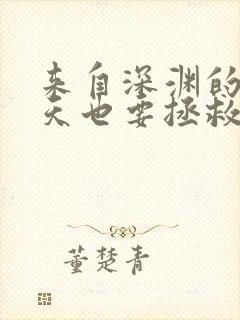 来自深渊的
天也要拯救
董楚青